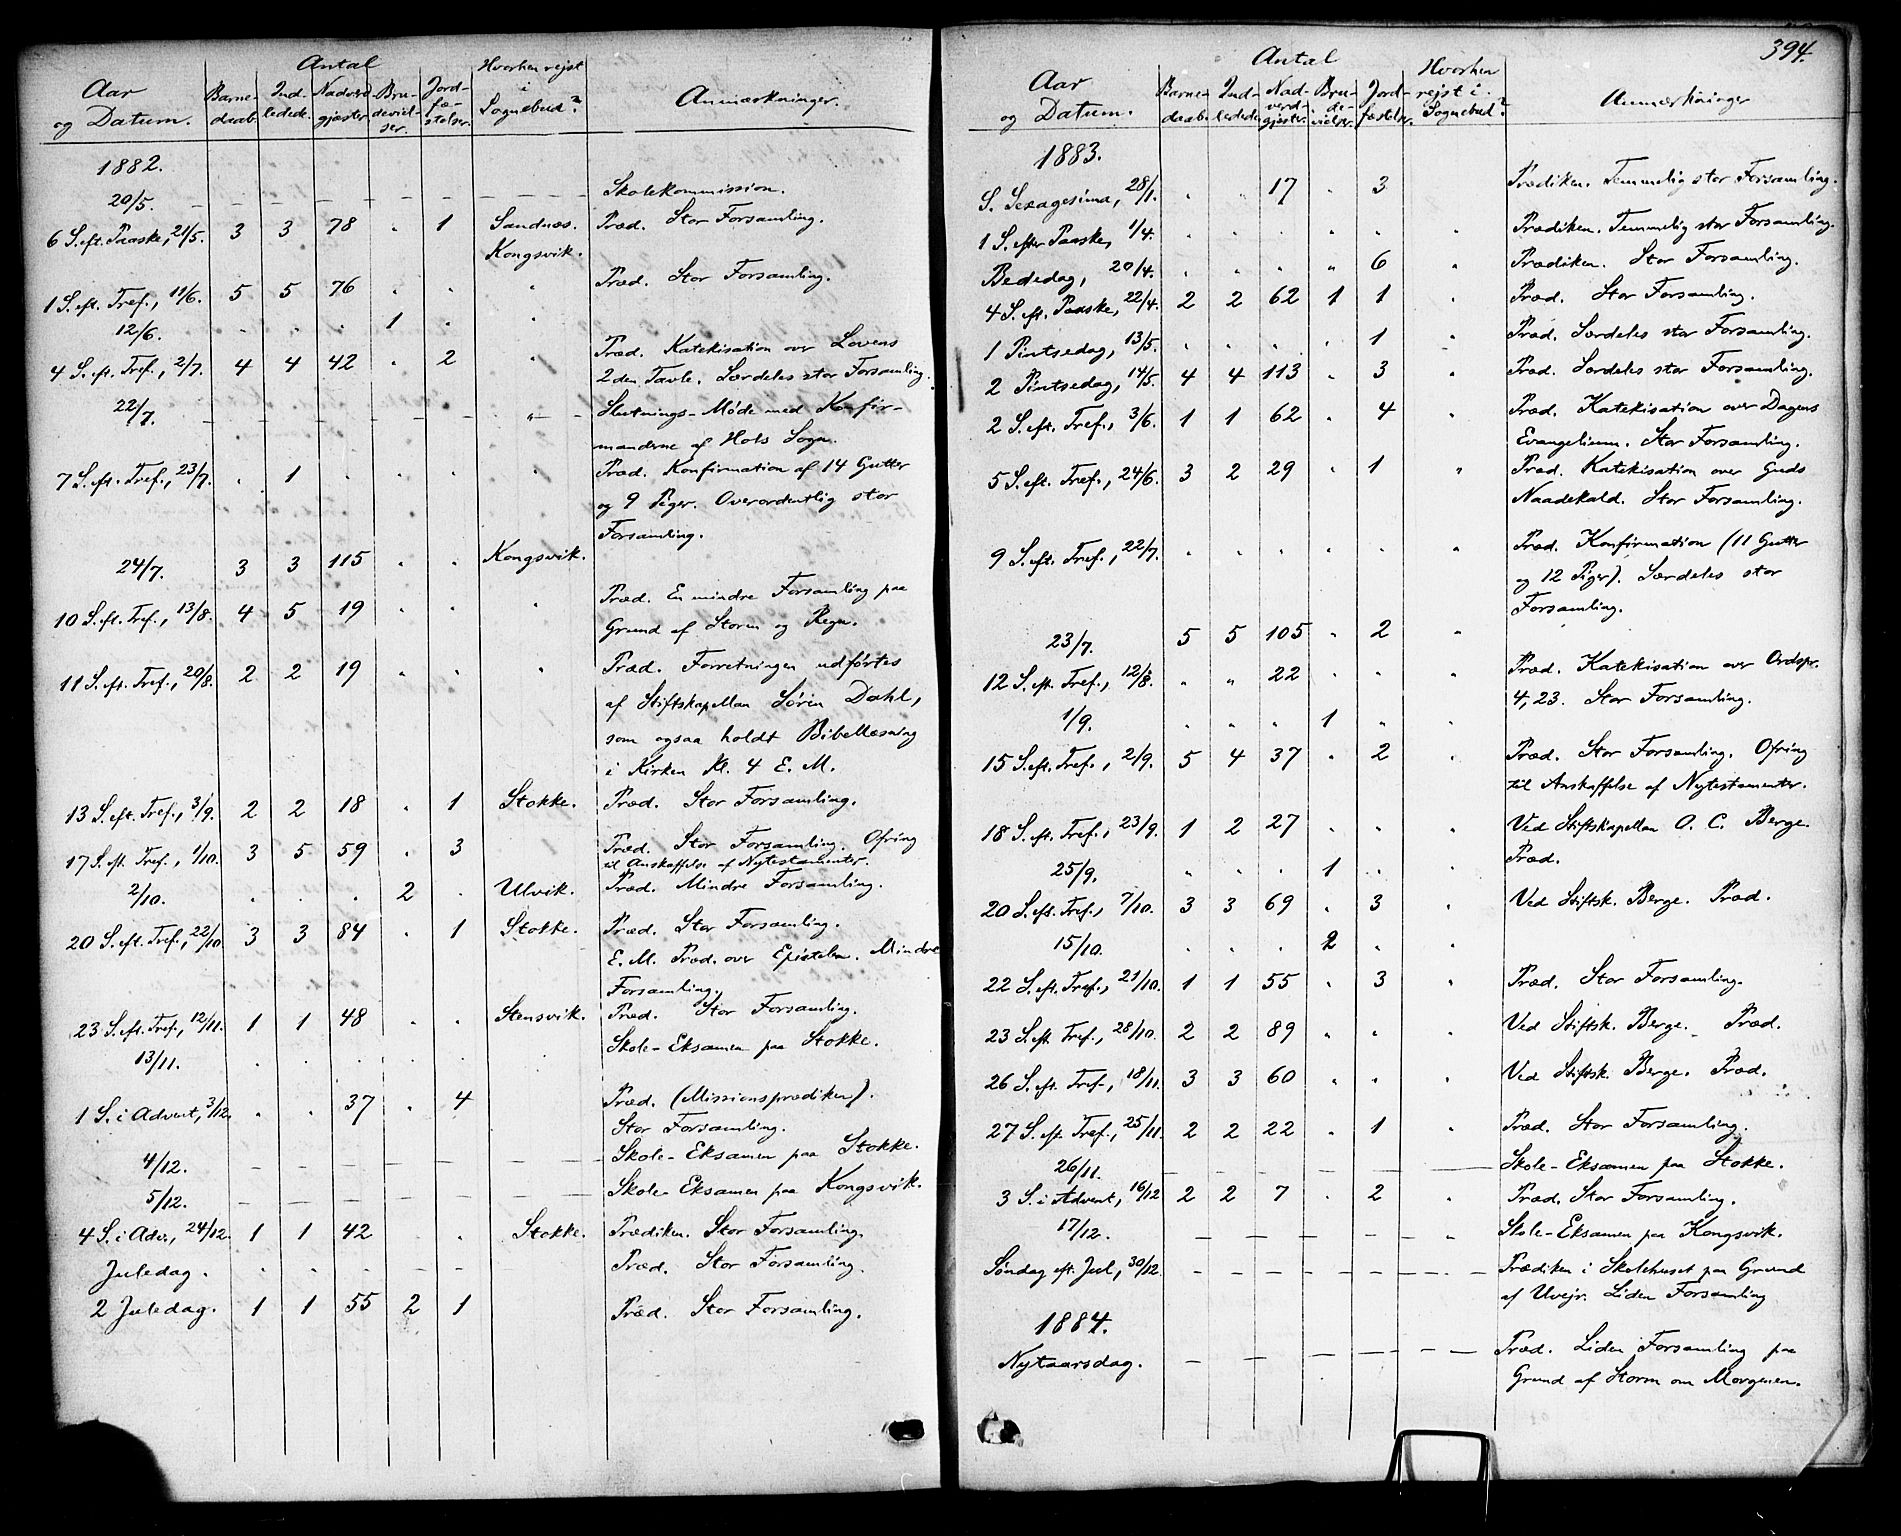 394.
Aar og Datum. | Antal | Barnedaab. | Indledede. | Nadverdgjæster. | Brudevielser. | Jordfæstelser. | Hvorhen rejst i Sognebud? | Anmærkninger.
1882.
20/5. – – – – – – Skolekommission.
6 S. eft. Paaske, 21/5. 3 3 78 " 1 Sandnæs. Præd. Stor Forsamling.
Kongsvik.
1 S. eft. Tref., 11/6. 5 5 76 " " " Præd. Stor Forsamling.
12/6. " " " 1 " "
4 S. eft. Tref., 2/7. 4 4 42 " 2 " Præd. Katekisation over Lovens
2den Tavle. Særdeles stor Forsamling.
22/7. – – – – – " – Slutnings-Møde med Konfir-
manderne af Hols Sogn.
7 S. eft. Tref., 23/7. " 1 " " " " Præd. Konfirmation af 14 Gutter
og 9 Piger. Overordentlig stor
Forsamling.
24/7. 3 3 115 " " Kongsvik.
10 S. eft. Tref., 13/8. 4 5 19 " " " Præd. En mindre Forsamling paa
Grund af Storm og Regn.
11 S. eft. Tref., 20/8. 2 2 19 " " " Præd. Forretningen udførtes
af Stiftskapellan Sören Dahl,
som ogsaa holdt Bibellæsning
i Kirken Kl. 4 E. M.
13 S. eft. Tref., 3/9. 2 2 18 " 1 Stokke. Præd. Stor Forsamling.
17 S. eft. Tref., 1/10. 3 5 59 " 3 Præd. Stor Forsamling. Ofring
til Anskaffelse af Nytestamenter.
2/10. " " " 2 " Ulvik. Præd. Mindre Forsamling.
20 S. eft. Tref., 22/10. 3 3 84 " 1 Stokke. Præd. Stor Forsamling.
E. M. Præd. over Epistelen. Mindre
Forsamling.
23 S. eft. Tref., 12/11. 1 1 48 " " Stensvik. Præd. Stor Forsamling.
13/11. " " " " " " Skole-Eksamen paa Stokke.
1 S. i Advent, 3/12. " " 37 " 4 Præd. (Missionsprædiken).
Stor Forsamling.
4/12. – – – – – – Skole-Eksamen paa Stokke.
5/12. – – – – – – Skole-Eksamen paa Kongsvik.
4 S. i Adv., 24/12. 1 1 42 " " Stokke. Prædiken. Stor Forsamling.
Juledag. " " " – – – Præd. Stor Forsamling.
2 Juledag. 1 1 55 2 1 Præd. Stor Forsamling.
Aar og Datum. | Antal | Barnedaab. | Indledede. | Nadverdgjæster. | Brudevielser. | Jordfæstelser. | Hvorhen rejst i Sognebud? | Anmærkninger
1883.
S. Sexagesima, 28/1. " " 17 " 3 Prædiken. Temmelig stor Forsamling.
1 S. efter Paaske, 1/4. " " " " " " Prædiken. Temmelig stor Forsamling.
Bededag, 20/4. " " " " 6 " Prædiken. Stor Forsamling.
4 S. eft. Paaske, 22/4. 2 2 62 1 1 " Præd. Stor Forsamling.
1 Pintsedag, 13/5. " " " " 1 " Præd. Særdeles stor Forsamling.
2 Pintsedag, 14/5. 4 4 113 " 3 " Præd. Særdeles stor Forsamling.
2 S. eft. Tref., 3/6. 1 1 62 " 4 " Præd. Katekisation over Dagens
Evangelium. Stor Forsamling.
5 S. eft. Tref., 24/6. 3 2 29 " 1 " Præd. Katekisation over Guds
Naadekald. Stor Forsamling.
9 S. eft. Tref., 22/7. " " " " " " Præd. Konfirmation (11 Gutter
og 12 Piger). Særdeles stor
Forsamling.
23/7. 5 5 105 " 2 "
12 S. eft. Tref., 12/8. " " 22 " " " Præd. Katekisation over Ordspr.
4, 23. Stor Forsamling.
1/9. " " " 1 " "
15 S. eft. Tref., 2/9. 5 4 37 " 2 " Præd. Stor Forsamling. Ofring
til Anskaffelse af Nytestamenter.
18 S. eft. Tref., 23/9. 1 2 27 " " " Ved Stiftskapellan O. C. Berge.
Præd.
25/9. " " " 1 " "
20 S. eft. Tref., 7/10. 3 3 69 " 3 " Ved Stiftsk. Berge. Præd.
15/10. " " " 2 " "
22 S. eft. Tref., 21/10. 1 1 55 " 3 " Præd. Stor Forsamling.
23 S. eft. Tref., 28/10. 2 2 89 " " " Ved Stiftsk. Berge. Præd.
26 S. eft. Tref., 18/11. 3 3 60 " " " Ved Stiftsk. Berge. Præd.
27 S. eft. Tref., 25/11. 2 2 22 " 1 " Præd. Stor Forsamling.
26/11. – – – – – – Skole-Eksamen paa Stokke.
3 S. i Advent, 16/12. 2 2 7 " 2 " Præd. Stor Forsamling.
17/12. – – – – – " Skole-Eksamen paa Kongsvik.
Søndag eft. Jul, 30/12. – – – – – – Prædiken i Skolehuset paa Grund
af Uvejr. Liden Forsamling
1884.
Nytaarsdag. – – – – – – Præd. Liden Forsamling paa
Grund af Storm om Morgenen.